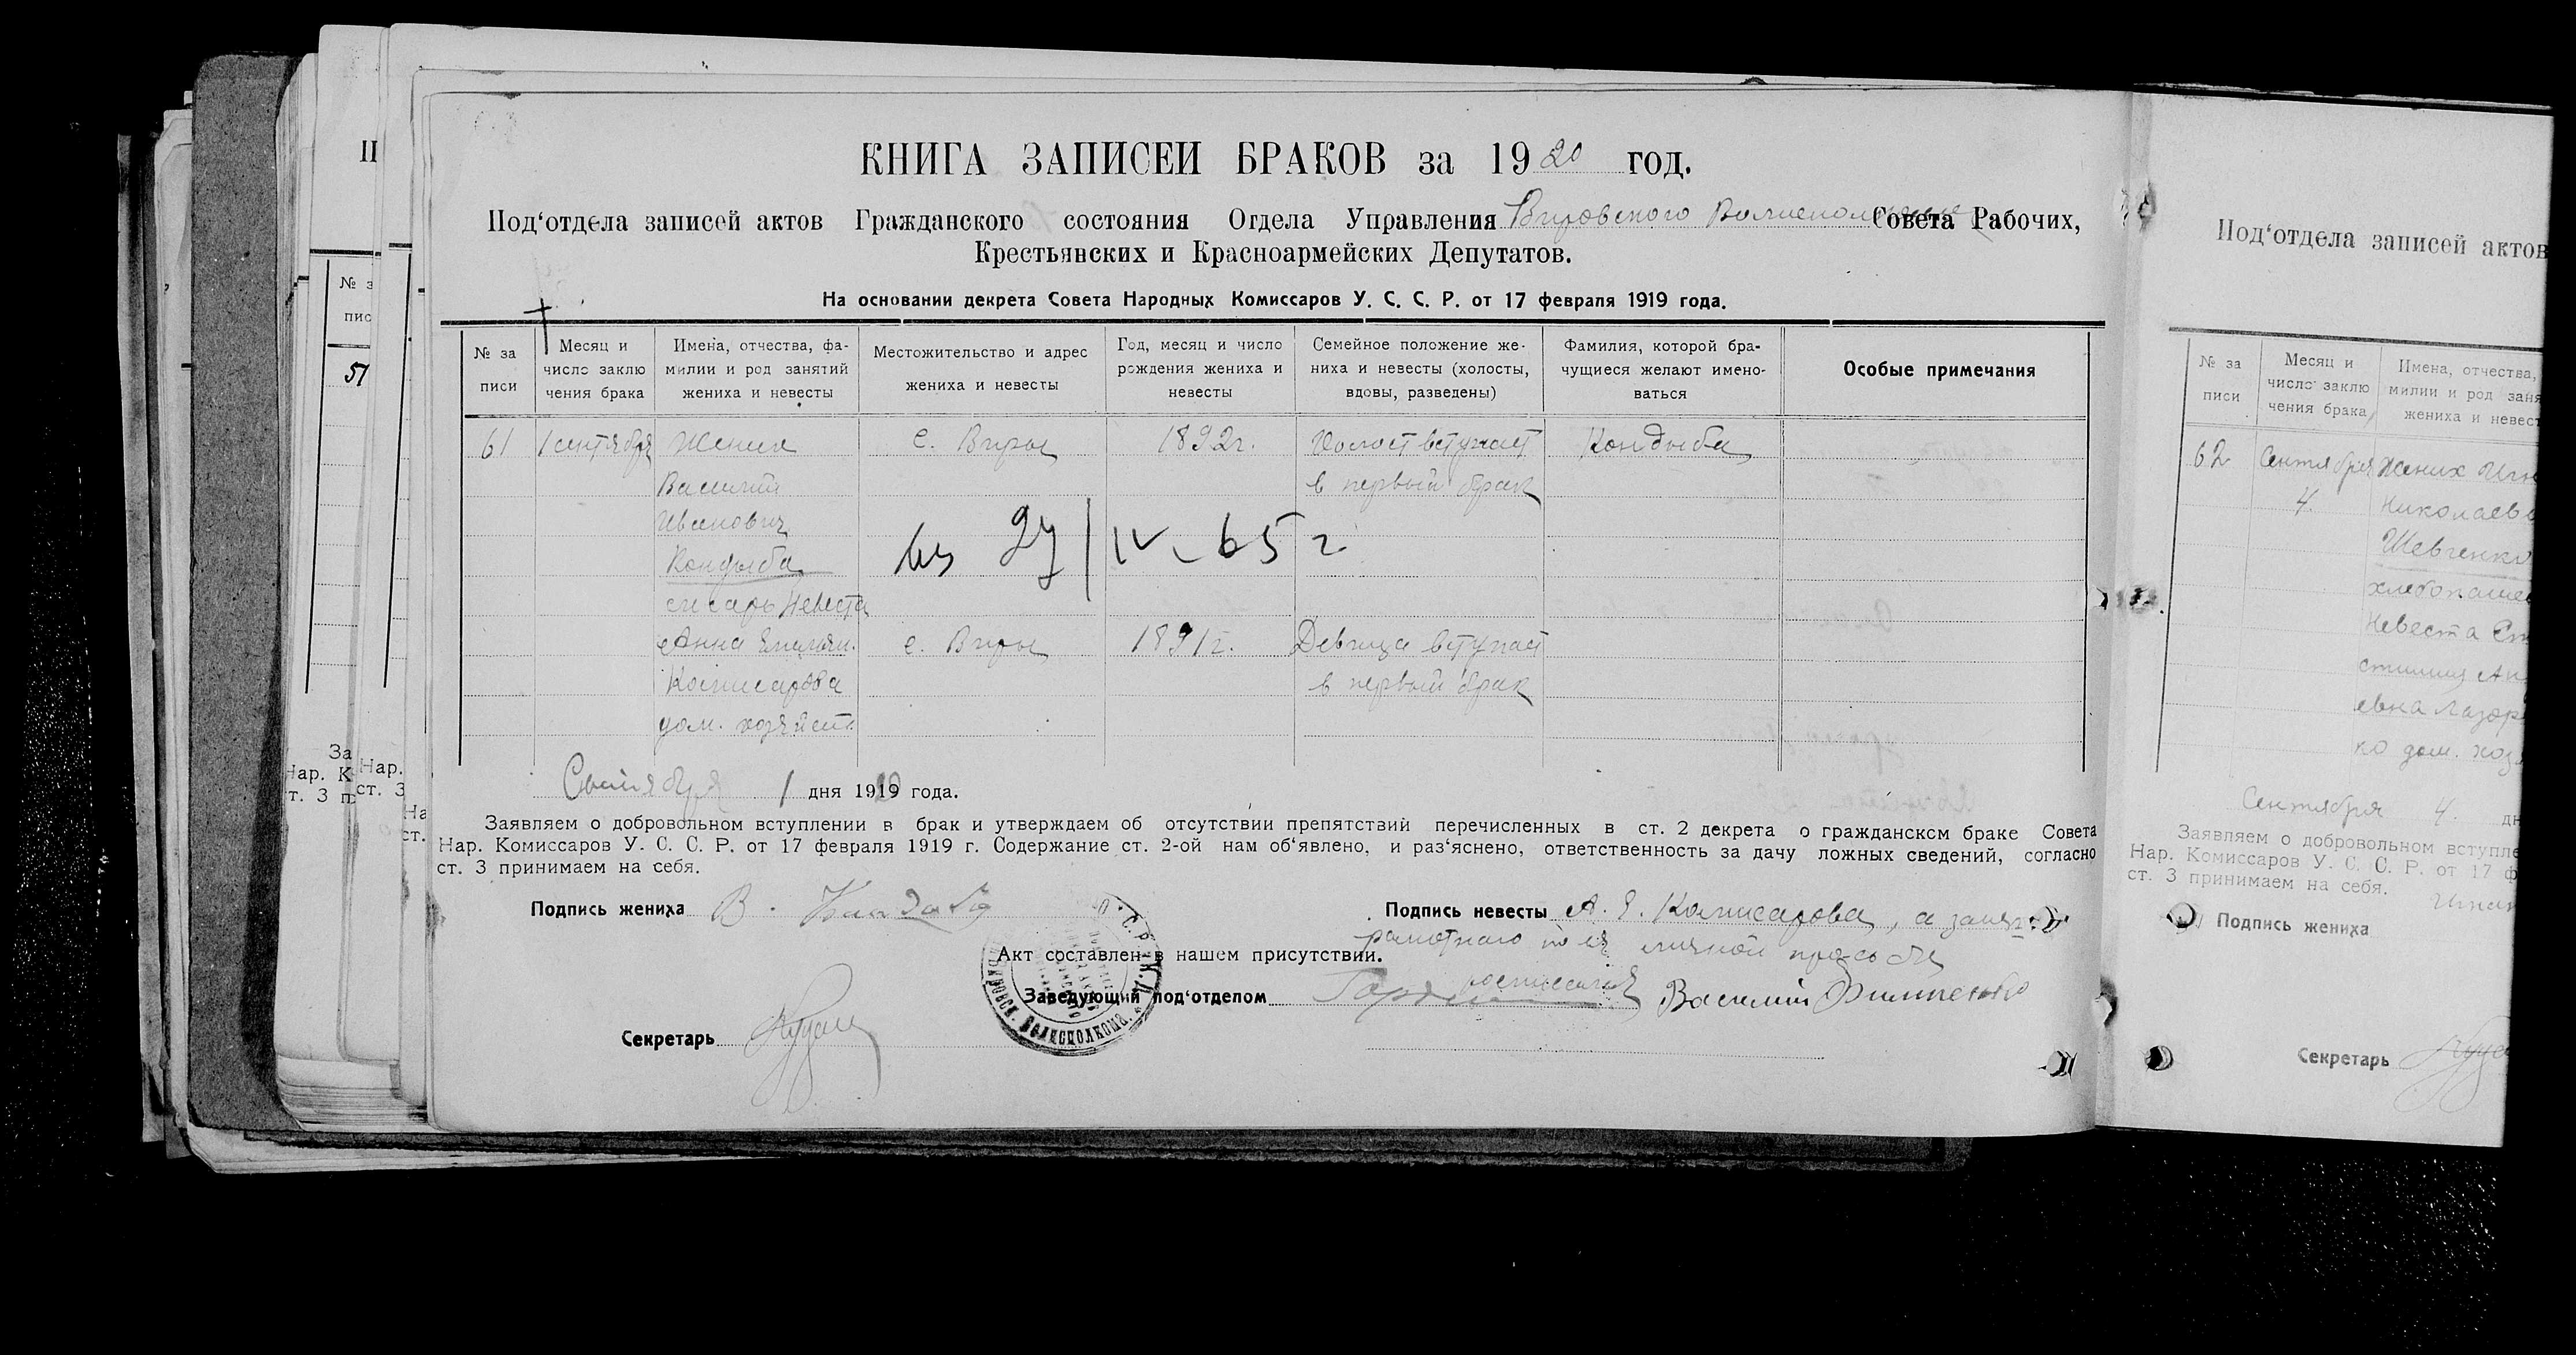 КНИГА ЗАПИСЕЙ БРАКОВ за 1920 год.
Под‘отдела записей актов Гражданского состояния Отдела Управления Вировского Волисполкома Совета Рабочих,
Крестьянских и Красноармейских Депутатов.
На основании декрета Совета Народных Комиссаров У. С. С. Р. от 17 февраля 1919 года.
№ за писи
Месяц и число заклю чения брака
Имена, отчества, фа- милии и род занятий жениха и невесты
Местожительство и адрес жениха и невесты
Год, месяц и число рождения жениха и невесты
Семейное положение же- ниха и невесты (холосты, вдовы, разведены)
Фамилия, которой бра- чущиеся желают имено- ваться
Особые примечания
61 1 сентября Жених с. Виры 1892г. Холост вступает Кондыба
Василий в первый брак
Иванович
Кондыба 27/IV-65 г
слесарь Невеста
Анна Емельян. с. Виры 1891г. Девица вступает
Комисарова в первый брак
дом. хозяйст.
Сентября 1 дня 1919 года.
Заявляем о добровольном вступлении в брак и утверждаем об отсутствии препятствий перечисленных в ст. 2 декрета о гражданском браке Совета
Нар. Комиссаров У. С. С. Р. от 17 февраля 1919 г. Содержание ст. 2-ой нам об‘явлено, и раз‘яснено, ответственность за дачу ложных сведений, согласно
ст. 3 принимаем на себя.
Подпись жениха В. Кондыба Подпись невесты А. Е. Комисарова, а за
личной просьбе
Акт составлен в нашем присутствии.
Заведующий под‘отделом росписался Василий Филипенко
Секретарь
Волисполкома
II
№ з
пис
51
За
Нар. К
т. 3 п
Нар.
ст. 3
На
ст.
Под‘отдела записей актов
№ за писи
Месяц и число заклю чения брака
Имена, отчества, милии и род заня жениха и невест
62 Сентября Жених Игн
4. Николаев
Шевченко
хлебопашец
Невеста
евна Лазар
ко дом. хоз
Сентября 4. дн
Заявляем о добровольном вступле
Нар. Комиссаров У. С. С. Р. от 17 ф
ст. 3 принимаем на себя.
Подпись жениха
Секретарь